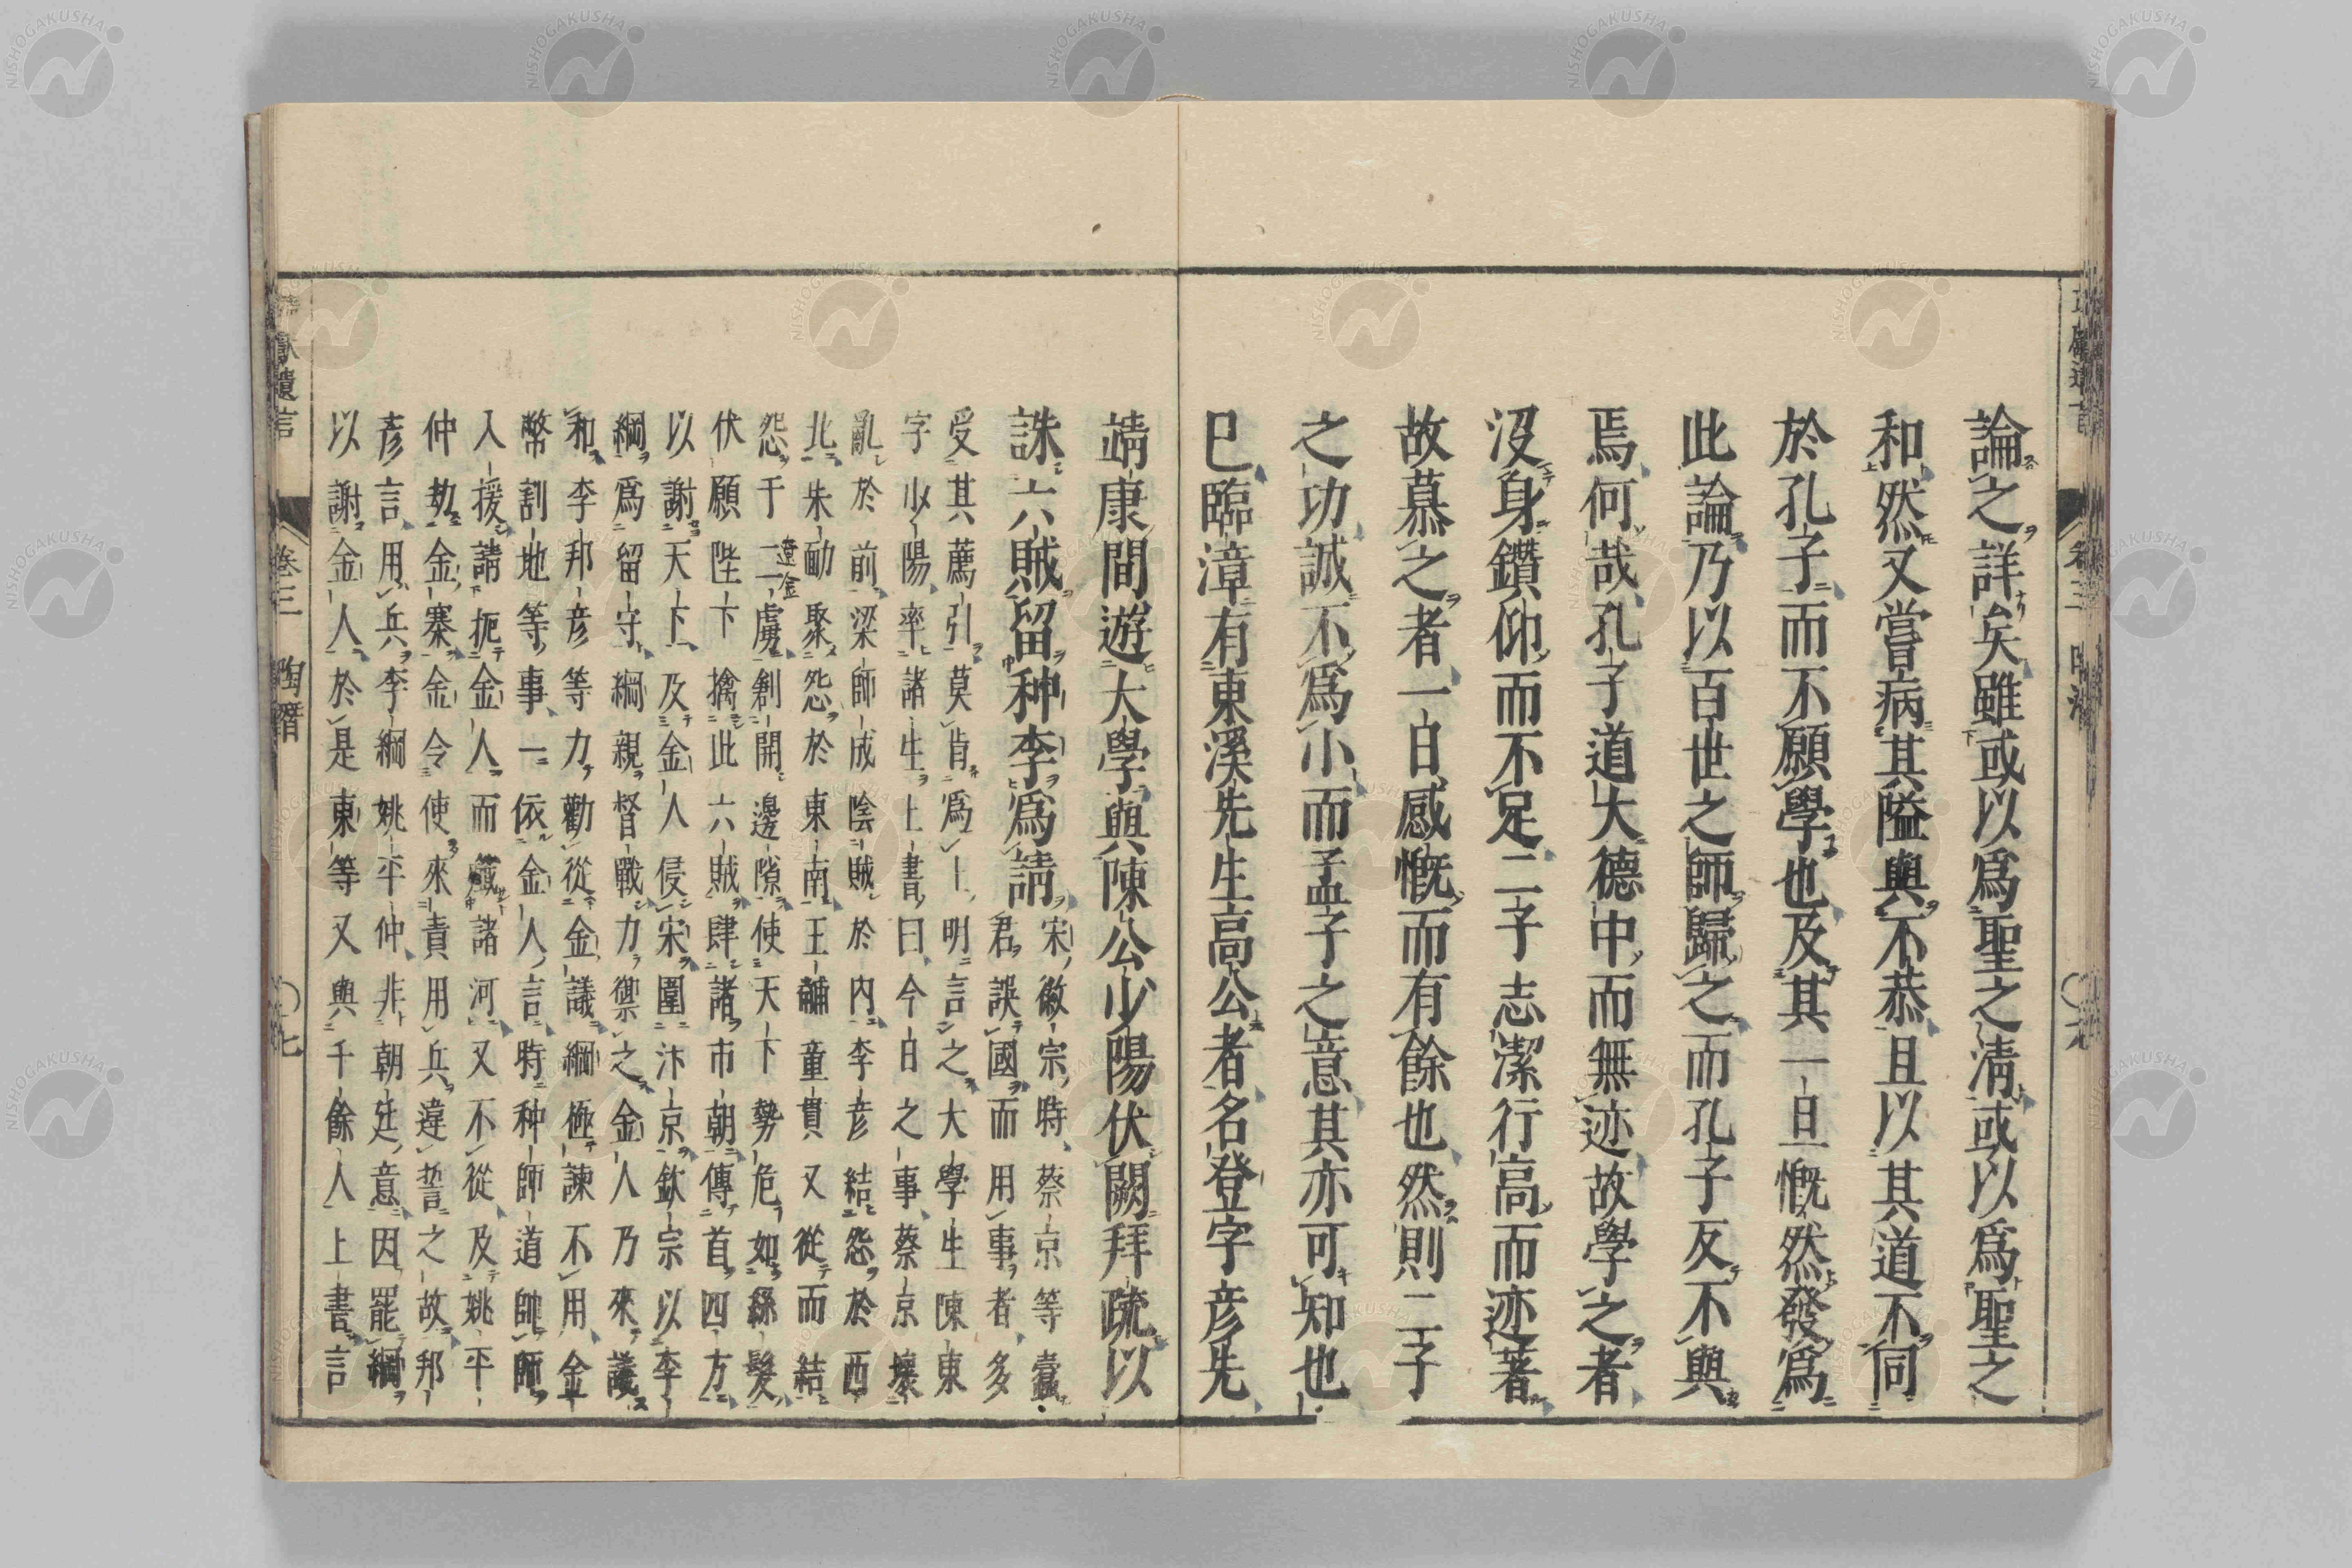 論之詳矣雖或以爲聖之淸或以爲聖之
和然又嘗病其隘與不恭且以其道不同
於孔子而不願學也及其一旦慨然發爲
此論乃以百世之師歸之而孔子反不與
焉何哉孔子道大德中而無迹故學之者
沒身鑽仰而不足二子志潔行高而迹著
故慕之者一日感慨而有餘也然則二子
之功誠不爲小而孟子之意其亦可知也
已臨漳有東溪先生高公者名登字彥先
靖康間遊大學與陳公少陽伏闕拜疏以
誅六賊留种李爲請
宋徽宗時蔡京等蠹
君誤國而用事者多
受其薦引莫肯爲上明言之大學生陳東
字少陽率諸生上書曰今日之事蔡京壞
亂於前梁師成陰賊於內李彥結怨於西
北朱勔聚怨於東南王黼童貫又從而結
怨于二虜創開邊隙使天下勢危如絲髮
遼金
伏願陛下擒此六賊肆諸市朝傳首四方
以謝天下及金人侵宋圍汴京欽宗以李
綱爲留守綱親督戰力禦之金人乃來議
和李邦彥等力勸從金議綱極諫不用金
幣割地等事一依金人言時种師道帥師
入援請扼金人而殲諸河又不從及姚平
仲劫金寨金令使來責用兵違誓之故邦
彥言用兵李綱姚平仲非朝廷意因罷綱
以謝金人於是東等又與千餘人上書言
獻遺言
卷三
陶潛
七
NISHOGAKUSHA